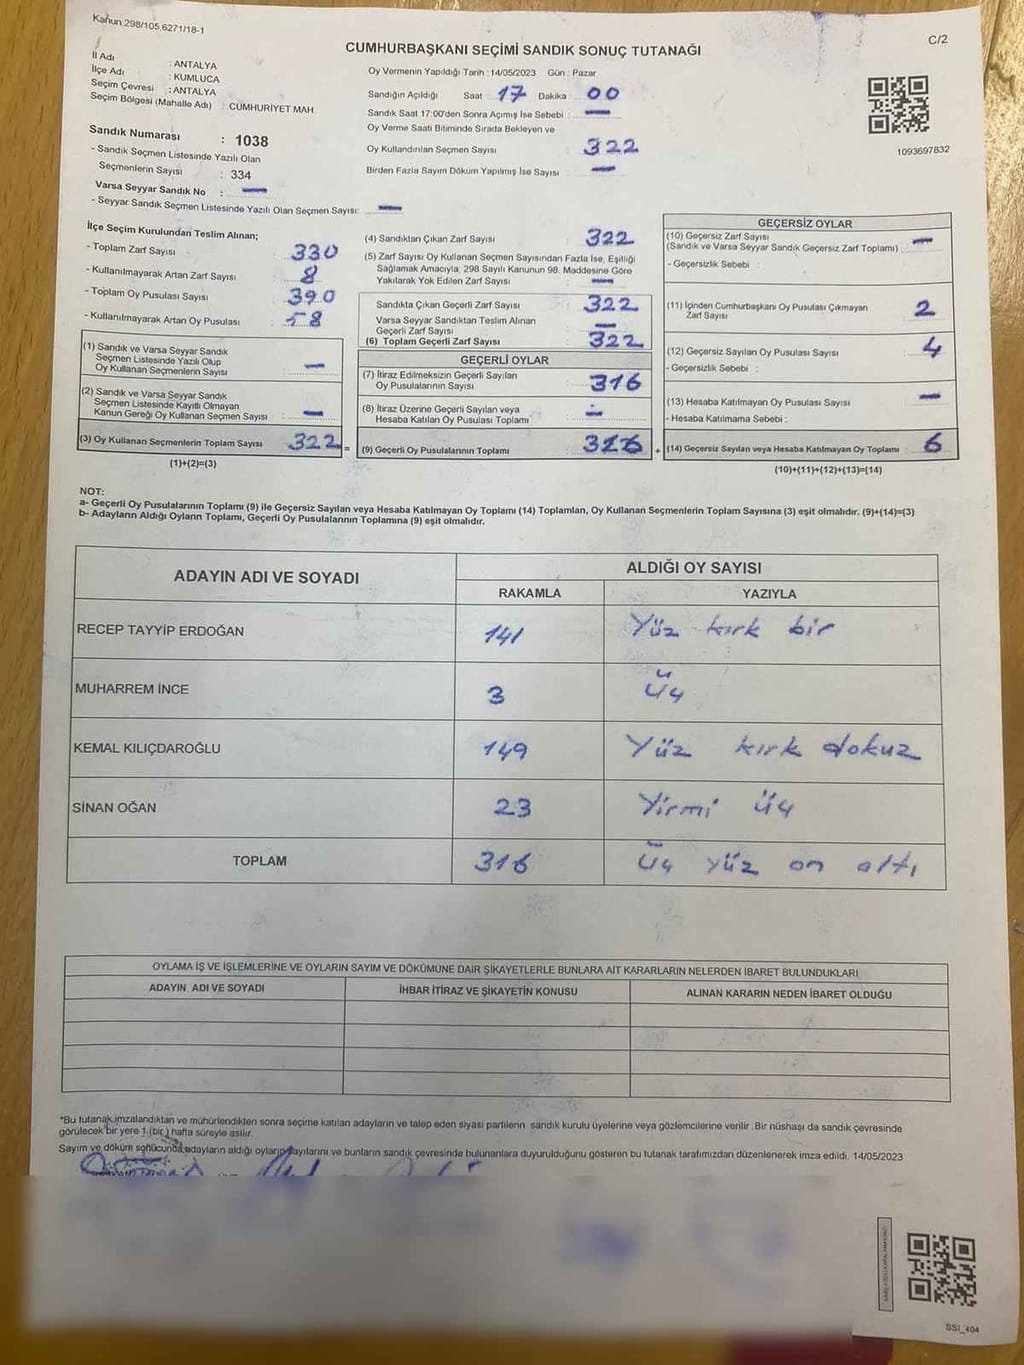 Kanun:298/105,6271/18-1
C/2
CUMHURBAŞKANI SEÇİMİ SANDIK SONUÇ TUTANAĞI
İl Adı : ANTALYA
İlçe Adı : KUMLUCA
Seçim Çevresi : ANTALYA
Seçim Bölgesi (Mahalle Adı) : CUMHURİYET MAH
Sandık Numarası : 1038
- Sandık Seçmen Listesinde Yazılı Olan
Seçmenlerin Sayısı : 334
Varsa Seyyar Sandık No : —
- Seyyar Sandık Seçmen Listesinde Yazılı Olan Seçmen Sayısı: —
Oy Vermenin Yapıldığı Tarih : 14/05/2023 Gün : Pazar
Sandığın Açıldığı Saat 17 Dakika 00
Sandık Saat 17:00'den Sonra Açımış İse Sebebi : —
Oy Verme Saati Bitiminde Sırada Bekleyen ve
Oy Kullandırılan Seçmen Sayısı 322
Birden Fazla Sayım Döküm Yapılmış İse Sayısı : —
1093697832
İlçe Seçim Kurulundan Teslim Alınan;
- Toplam Zarf Sayısı : 330
- Kullanılmayarak Artan Zarf Sayısı : 8
- Toplam Oy Pusulası Sayısı : 390
- Kullanılmayarak Artan Oy Pusulası : 58
(1) Sandık ve Varsa Seyyar Sandık
Seçmen Listesinde Yazılı Olup
Oy Kullanan Seçmenlerin Sayısı : —
(2) Sandık ve Varsa Seyyar Sandık
Seçmen Listesinde Kayıtlı Olmayan
Kanun Gereği Oy Kullanan Seçmen Sayısı : —
(3) Oy Kullanan Seçmenlerin Toplam Sayısı 322 =
(1)+(2)=(3)
(4) Sandıktan Çıkan Zarf Sayısı : 322
(5) Zarf Sayısı Oy Kullanan Seçmen Sayısından Fazla İse, Eşitliği
Sağlamak Amacıyla, 298 Sayılı Kanunun 98. Maddesine Göre
Yakılarak Yok Edilen Zarf Sayısı : —
Sandıkta Çıkan Geçerli Zarf Sayısı : 322
Varsa Seyyar Sandıktan Teslim Alınan
Geçerli Zarf Sayısı : —
(6) Toplam Geçerli Zarf Sayısı : 322
GEÇERLİ OYLAR
(7) İtiraz Edilmeksizin Geçerli Sayılan
Oy Pusulalarının Sayısı : 316
(8) İtiraz Üzerine Geçerli Sayılan veya
Hesaba Katılan Oy Pusulası Toplamı : —
(9) Geçerli Oy Pusulalarının Toplamı : 316 +
GEÇERSİZ OYLAR
(10) Geçersiz Zarf Sayısı
(Sandık ve Varsa Seyyar Sandık Geçersiz Zarf Toplamı) : —
- Geçersizlik Sebebi :
(11) İçinden Cumhurbaşkanı Oy Pusulası Çıkmayan
Zarf Sayısı : 2
(12) Geçersiz Sayılan Oy Pusulası Sayısı : 4
- Geçersizlik Sebebi :
(13) Hesaba Katılmayan Oy Pusulası Sayısı : —
- Hesaba Katılmama Sebebi :
(14) Geçersiz Sayılan veya Hesaba Katılmayan Oy Toplamı : 6
(10)+(11)+(12)+(13)=(14)
NOT:
a- Geçerli Oy Pusulalarının Toplamı (9) ile Geçersiz Sayılan veya Hesaba Katılmayan Oy Toplamı (14) Toplamları, Oy Kullanan Seçmenlerin Toplam Sayısına (3) eşit olmalıdır. (9)+(14)=(3)
b- Adayların Aldığı Oyların Toplamı, Geçerli Oy Pusulalarının Toplamına (9) eşit olmalıdır.
ADAYIN ADI VE SOYADI ALDIĞI OY SAYISI
RAKAMLA YAZIYLA
RECEP TAYYİP ERDOĞAN 141 Yüz kırk bir
MUHARREM İNCE 3 Üç
KEMAL KILIÇDAROĞLU 149 Yüz kırk dokuz
SİNAN OĞAN 23 Yirmi üç
TOPLAM 316 Üç yüz on altı
OYLAMA İŞ VE İŞLEMLERİNE VE OYLARIN SAYIM VE DÖKÜMÜNE DAİR ŞİKAYETLERLE BUNLARA AİT KARARLARIN NELERDEN İBARET BULUNDUKLARI
ADAYIN ADI VE SOYADI İHBAR İTİRAZ VE ŞİKAYETİN KONUSU ALINAN KARARIN NEDEN İBARET OLDUĞU
*Bu tutanak,imzalandıktan ve mühürlendikten sonra seçime katılan adayların ve talep eden siyasi partilerin sandık kurulu üyelerine veya gözlemcilerine verilir .Bir nüshası da sandık çevresinde
görülecek bir yere 1 (bir ) hafta süreyle asılır.
Sayım ve döküm sonucunda,adayların aldığı oyların sayılarını ve bunların sandık çevresinde bulunanlara duyurulduğunu gösteren bu tutanak tarafımızdan düzenlenerek imza edildi. 14/05/2023
SSI_404